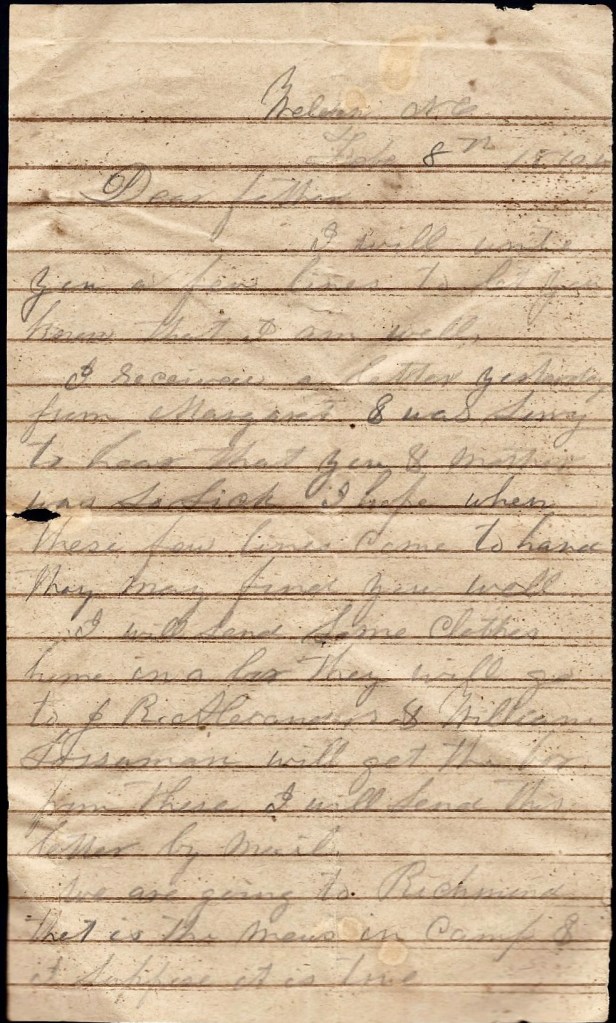 Weldon NC
Febr 8th 1864
Dear father
I will write
you a few lines to let you
know that I am well,
I received a letter yesterday
from Margaret & was sorry
to hear that you & Mother
was so sick I hope when
these few lines come to hand
they may find you well
I will send some clothes
home in a box they will go
to J R Alexanders & William
Fossaman will get the box
from there I will send this
letter by mail
We are going to Richmond
that is the news in Camp &
I suppose it is true